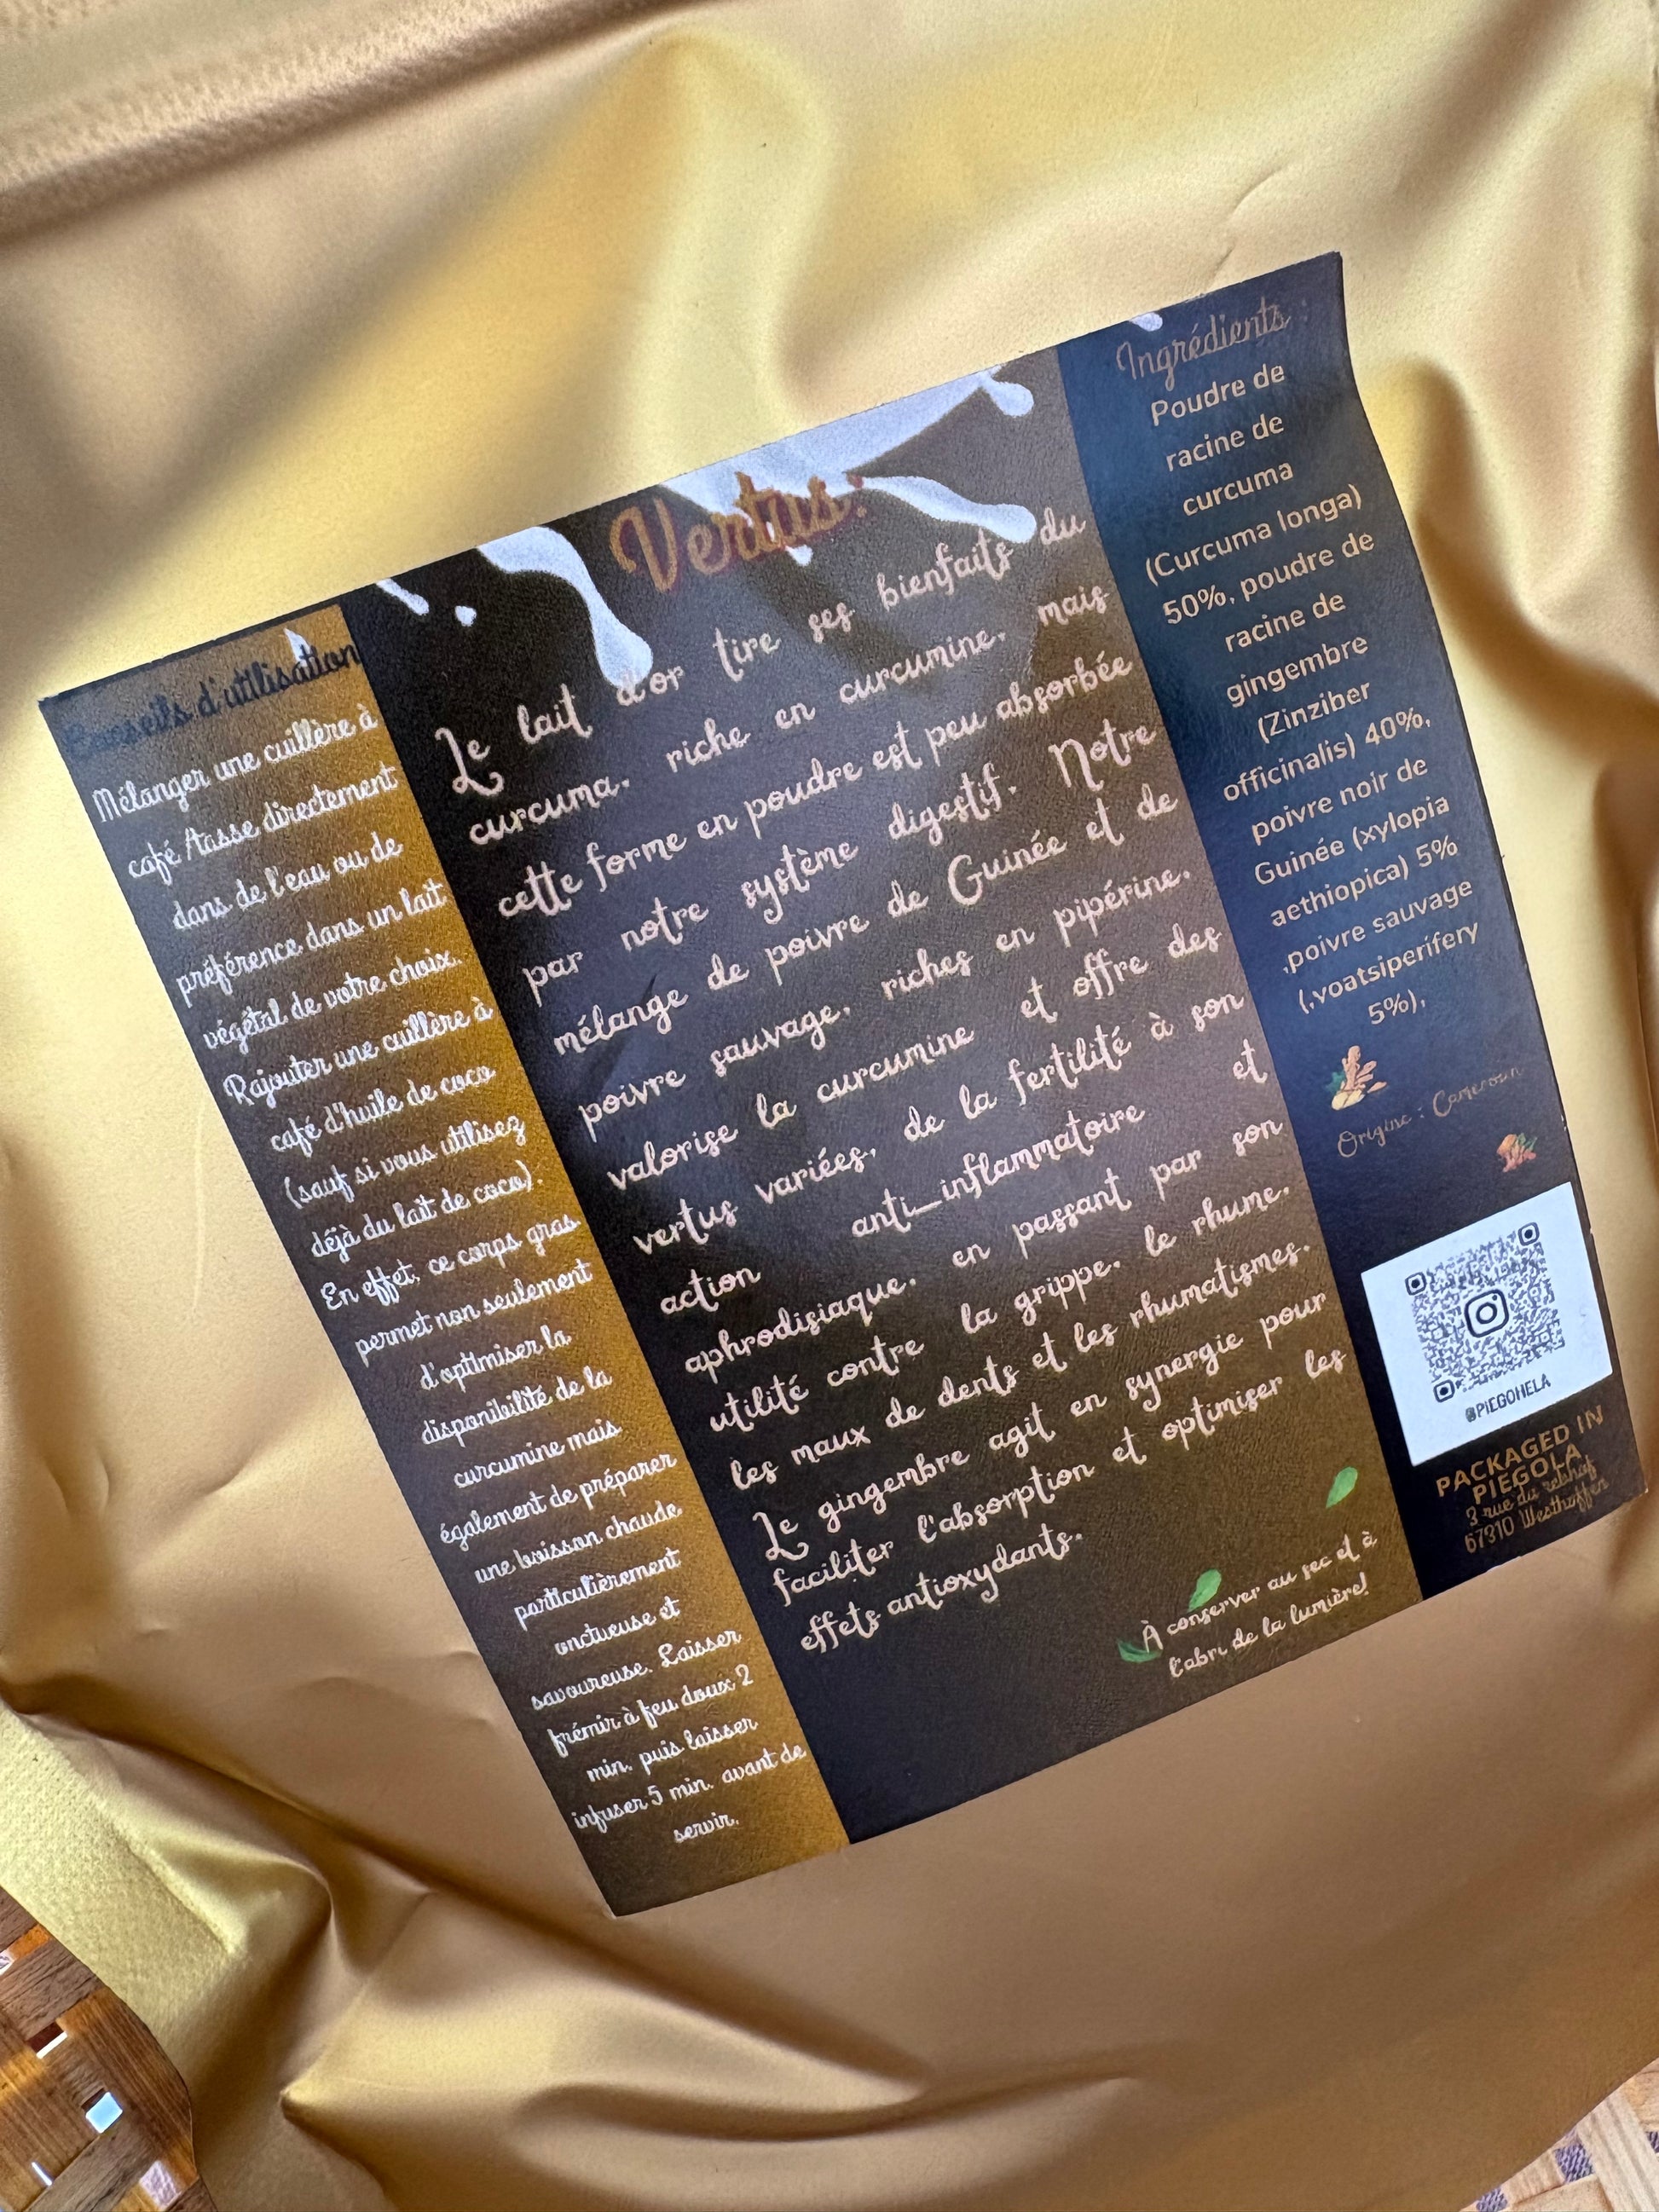 Conseils d'utilisation
Mélanger une cuillère à
café /tasse directement
dans de l'eau ou de
préférence dans un lait
végétal de votre choix.
Rajouter une cuillère à
café d'huile de coco
(sauf si vous utilisez
déjà du lait de coco).
En effet, ce corps gras
permet non seulement
d'optimiser la
disponibilité de la
curcumine mais
également de préparer
une boisson chaude
particulièrement
onctueuse et
savoureuse. Laisser
frémir à feu doux 2
min. puis laisser
infuser 5 min. avant de
servir.
Vertus:
Le lait d'or tire ses bienfaits du
curcuma, riche en curcumine, mais
cette forme en poudre est peu absorbée
par notre système digestif. Notre
mélange de poivre de Guinée et de
poivre sauvage, riches en pipérine,
valorise la curcumine et offre des
vertus variées, de la fertilité à son
action anti_inflammatoire et
aphrodisiaque, en passant par son
utilité contre la grippe, le rhume,
les maux de dents et les rhumatismes.
Le gingembre agit en synergie pour
faciliter l'absorption et optimiser les
effets antioxydants.
À conserver au sec et à
l'abri de la lumière!
Ingrédients :
Poudre de
racine de
curcuma
(Curcuma longa)
50%, poudre de
racine de
gingembre
(Zinziber
officinalis) 40%,
poivre noir de
Guinée (xylopia
aethiopica) 5%
,poivre sauvage
(,voatsiperifery
5%),
Origine : Cameroun
@PIEGOHELA
PACKAGED IN
PIEGOLA
3 rue du
67310 Westhoffen